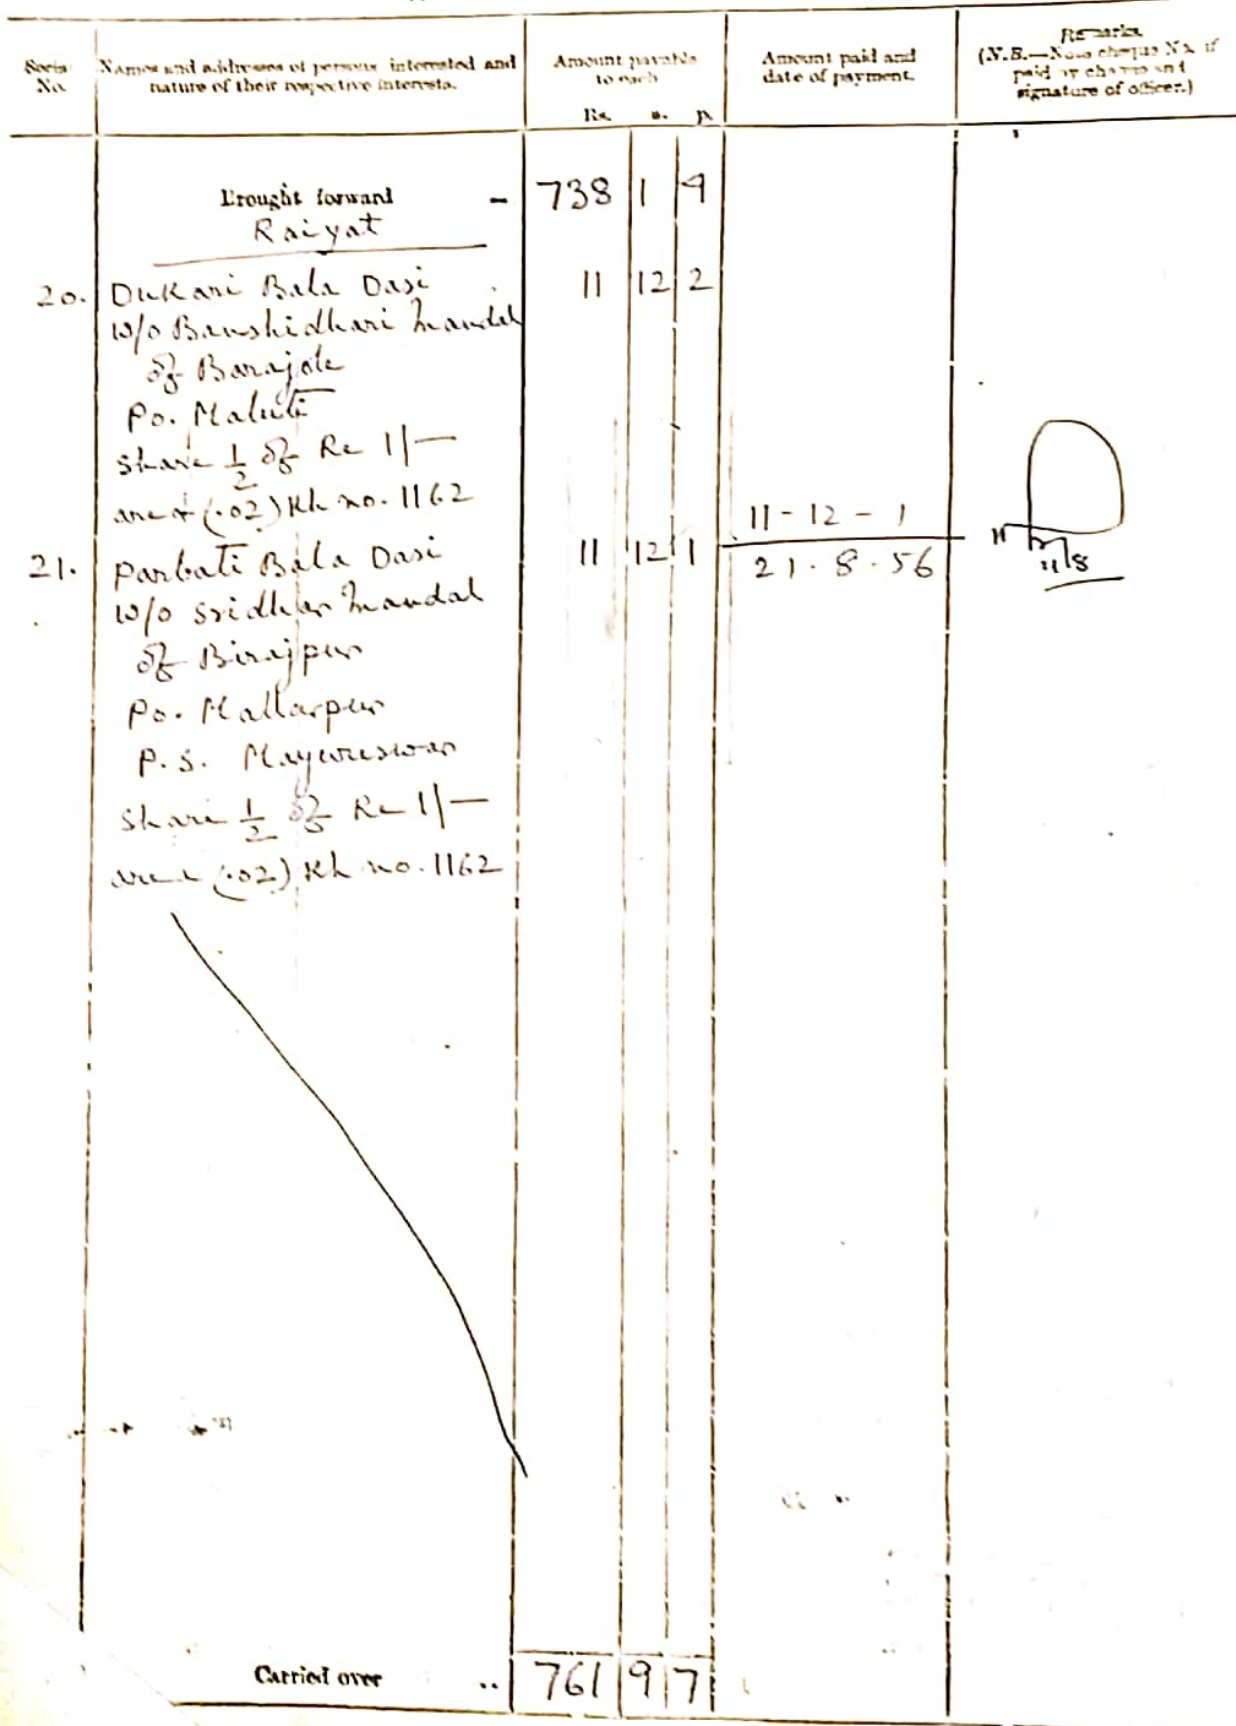 Serial No.
Names and addresses of persons interested and nature of their respective interests.
Amount payable to each
Rs. a. p.
Amount paid and date of payment.
Remarks
(N.B.—Note cheque No. if paid by cheque and signature of officer.)
Brought forward - 738 1 4
Raiyat
20. Dukari Bala Dasi 11 12 2
w/o Banshidhari Mandal
of Barajole
Po. Maluti
Share 1/2 of Re 1/—
area (.02) Kh no. 1162
21. Parbati Bala Dasi 11 12 1 11-12-1
w/o Sridhar Mandal 21.8.56
of Birajpur
Po. Mallarpur
P.S. Mayureswar
Share 1/2 of Re 1/—
area (.02) Kh no. 1162
Carried over .. 761 9 7